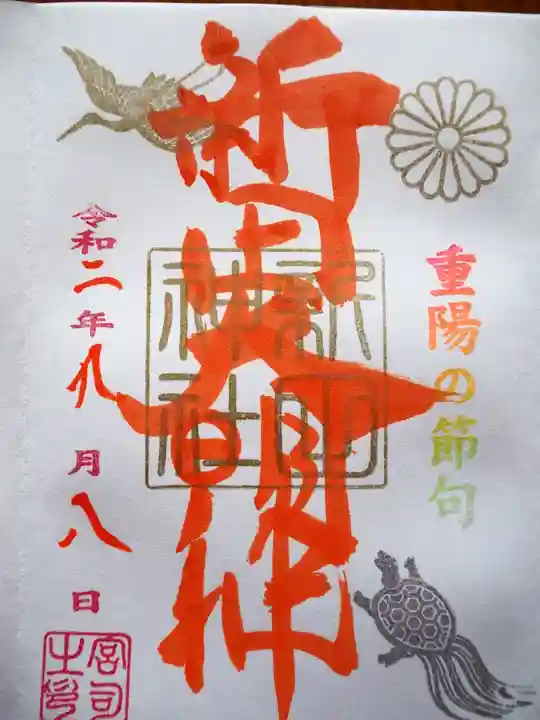 重陽の節句
新山大明神
新山
神社
令和二年九月八日
宮司
之印